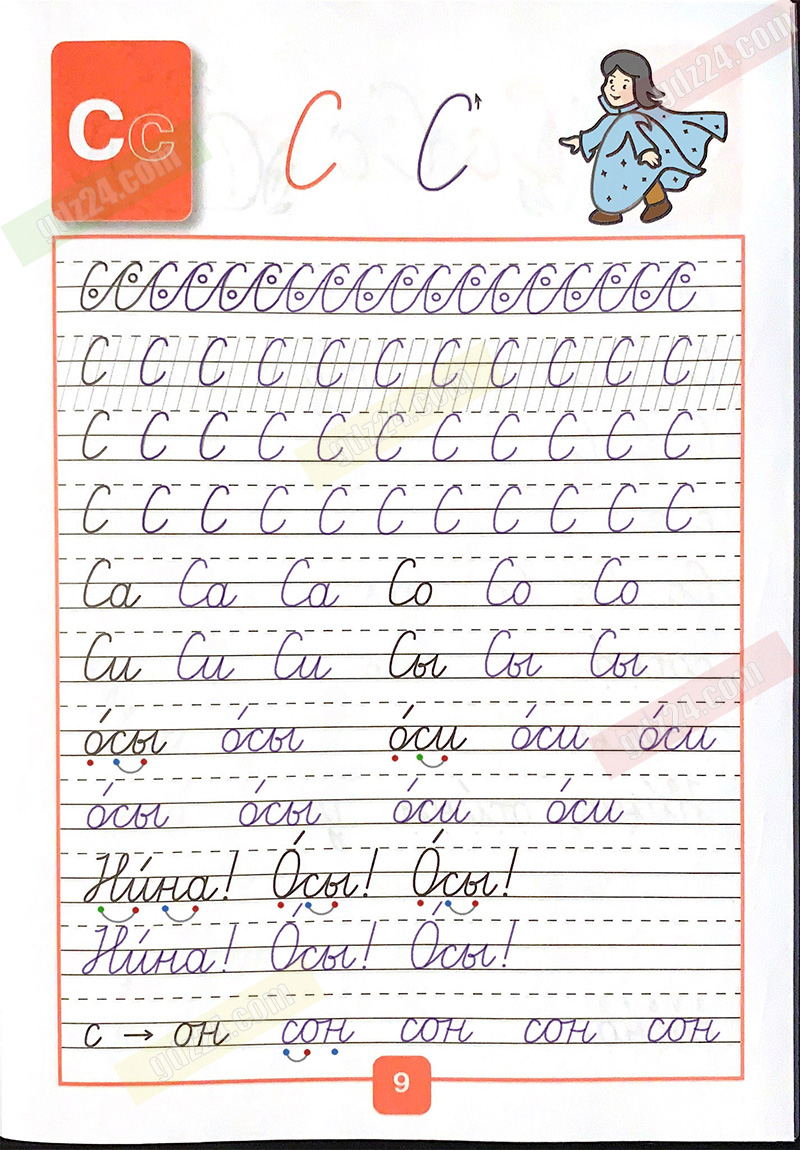 Сс С С
С С С С С С С С С С С С С С С С С С
С С С С С С С С С С С
С С С С С С С С С С С
С С С С С С С С С С С
Са Са Са Со Со Со
Си Си Си Сы Сы Сы
о́сы о́сы о́си о́си о́си
о́сы о́сы о́си о́си
Ни́на! О́сы! О́сы!
Ни́на! О́сы! О́сы!
с → он сон сон сон сон
9
gdz24.com
gdz24.com
gdz24.com
gdz24.com
gdz24.com